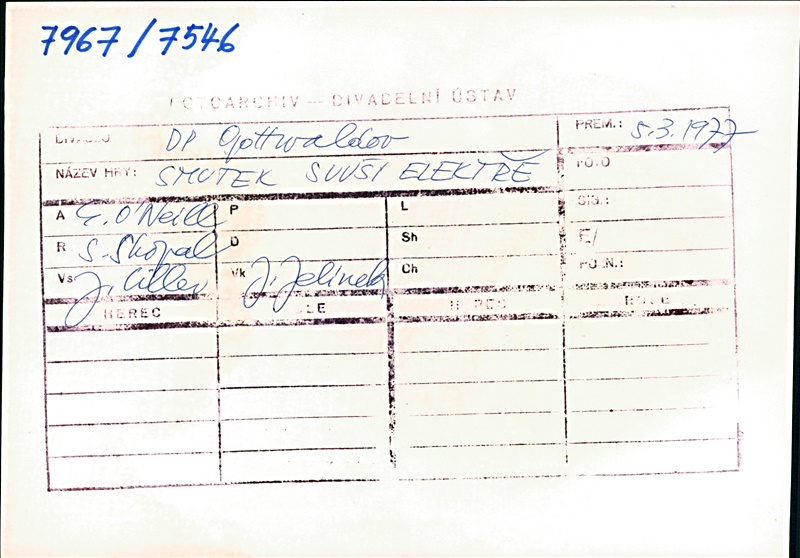 7967/7546
FOTOARCHIV — DIVADELNÍ ÚSTAV
DIVADLO DP Gottwaldov PREM.: 5.3.1977
NÁZEV HRY: SMUTEK SLUŠÍ ELEKTŘE FOTO
A E. O'Neill P L SIG.:
R S. Skopal D Sh E/
Vs J. Vk J. Jelínek Ch POZN.:
HEREC ROLE HEREC ROLE